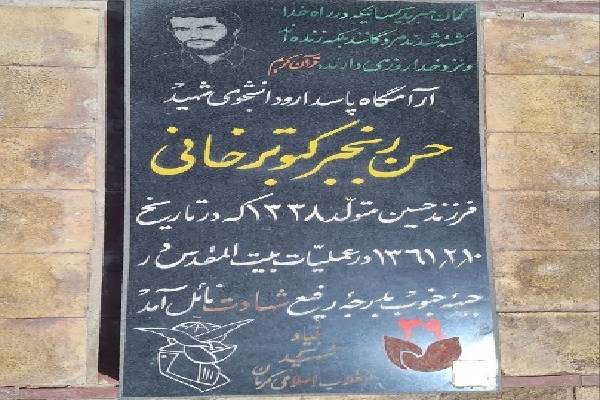 گمان مبرید کسانیکه در راه خدا
کشته شدند مردگانند بلکه زنده اند
و نزد خدا روزی دارند. قرآن کریم
آرامگاه پاسدار و دانشجوی شهید
حسن رنجبر کبوترخانی
فرزند حسین متولد ۱۳۳۸ که در تاریخ
۱۳۶۱٫۲٫۱۰ در عملیّات بیت المقدس در
جبههٔ جنوب بدرجهٔ رفیع شهادت نائل آمد
۳۹
بنیاد
شهید
انقلاب اسلامی کرمان